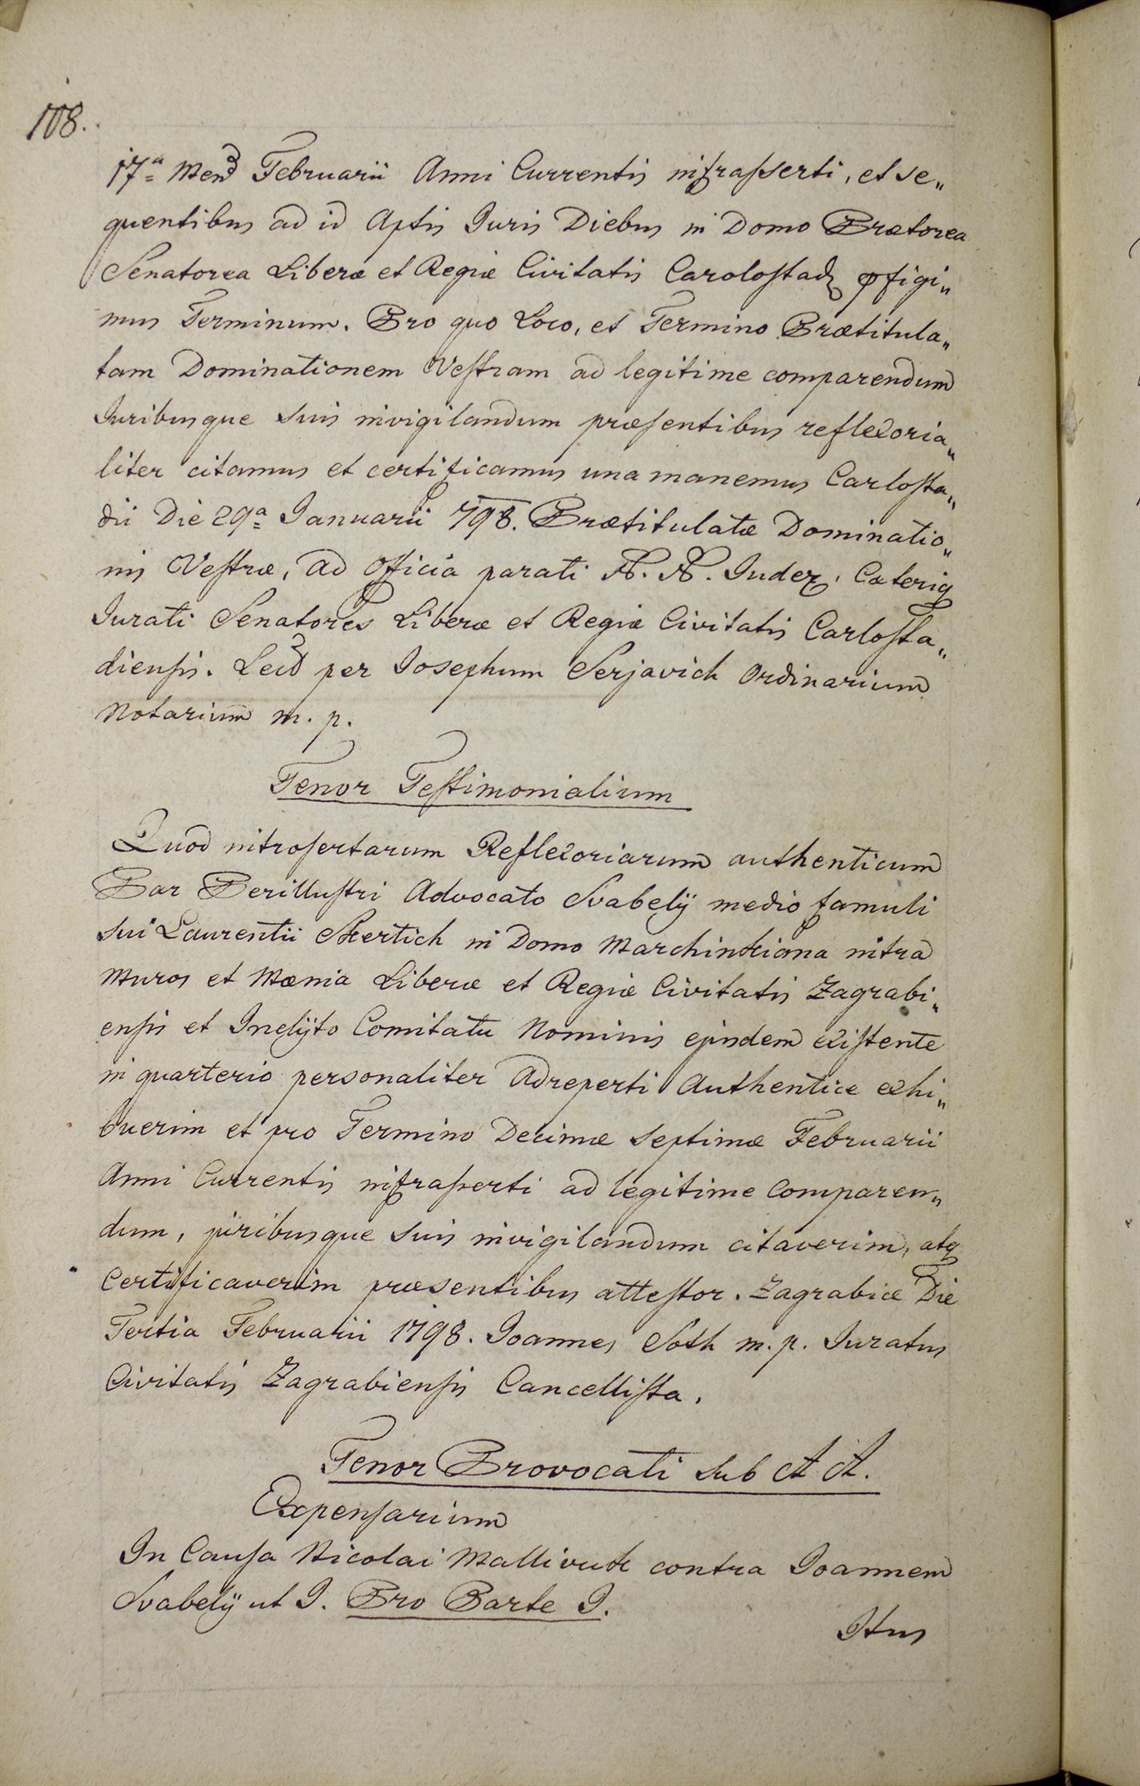 108.
17a Mens Februarii Anni Currentis infrasserti, et se„
quentibus ad id Aptis Juris Diebus in Domo Prætorea
Senatorea Liberæ et Regiæ Civitatis Carolostad pfigi„
mus Terminum. Pro quo Loco, et Termino Prætitula„
tam Dominationem Vestram ad legitime comparendum
Juribusque suis invigilandum præsentibus reflexoria„
liter citamus et certificamus una manemus Carlosta„
dii Die 29a Januarii 798. Prætitulatæ Dominatio„
nis Vestræ, ad officia parati N. N. Judex, Cæteriq
Jurati Senatores Liberæ et Regiæ Civitatis Carlosta„
diensis. Lecd per Josephum Serjavich Ordinarium
Notarium m. p.
Tenor Testimonialium
Quod introsertarum Reflexoriarum authenticum
Par Perillustri Advocato Svabely medio famuli
sui Laurentii Skertich in Domo Marchinkiana intra
Muros et Mænia Liberæ et Regiæ Civitatis Zagrabi„
ensis et Inclyto Comitatu Nominis ejusdem existente
in quarterio personaliter adreperti Authentice exhi„
buerim et pro Termino Decimæ Septimæ Februarii
Anni Currentis infrasserti ad legitime Comparen„
dum, juribusque suis invigilandum citaverim, atq
Certificaverim præsentibus attestor. Zagrabiæ Die
Tertia Februarii 1798. Joannes Soth m. p. Juratus
Civitatis Zagrabiensis Cancellista.
Tenor Provocati sub A A.
Expensarium
In Causa Nicolai Mallivuk contra Joannem
Svabely ut I. Pro Parte I.
Itus